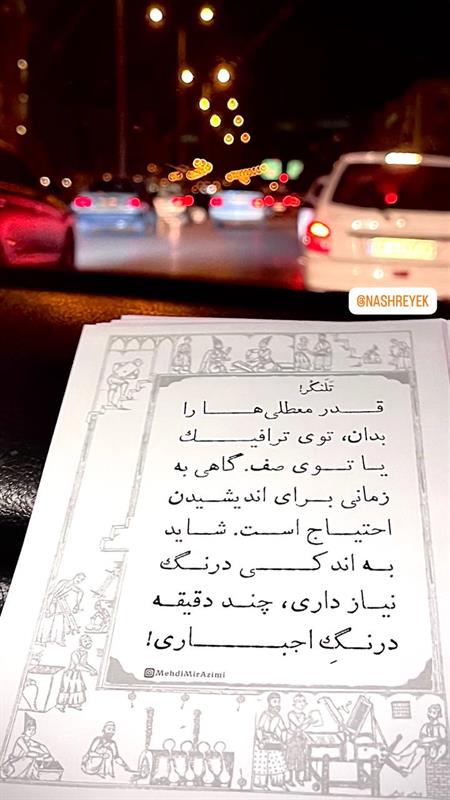 @NASHREYEK
تَلَنگُر!
قدر معطلی‌ها را
بدان، توی ترافیک
یا توی صف. گاهی به
زمانی برای اندیشیدن
احتیاج است. شاید
به اندکی درنگ
نیاز داری، چند دقیقه
درنگِ اجباری!
MehdiMirAzimi